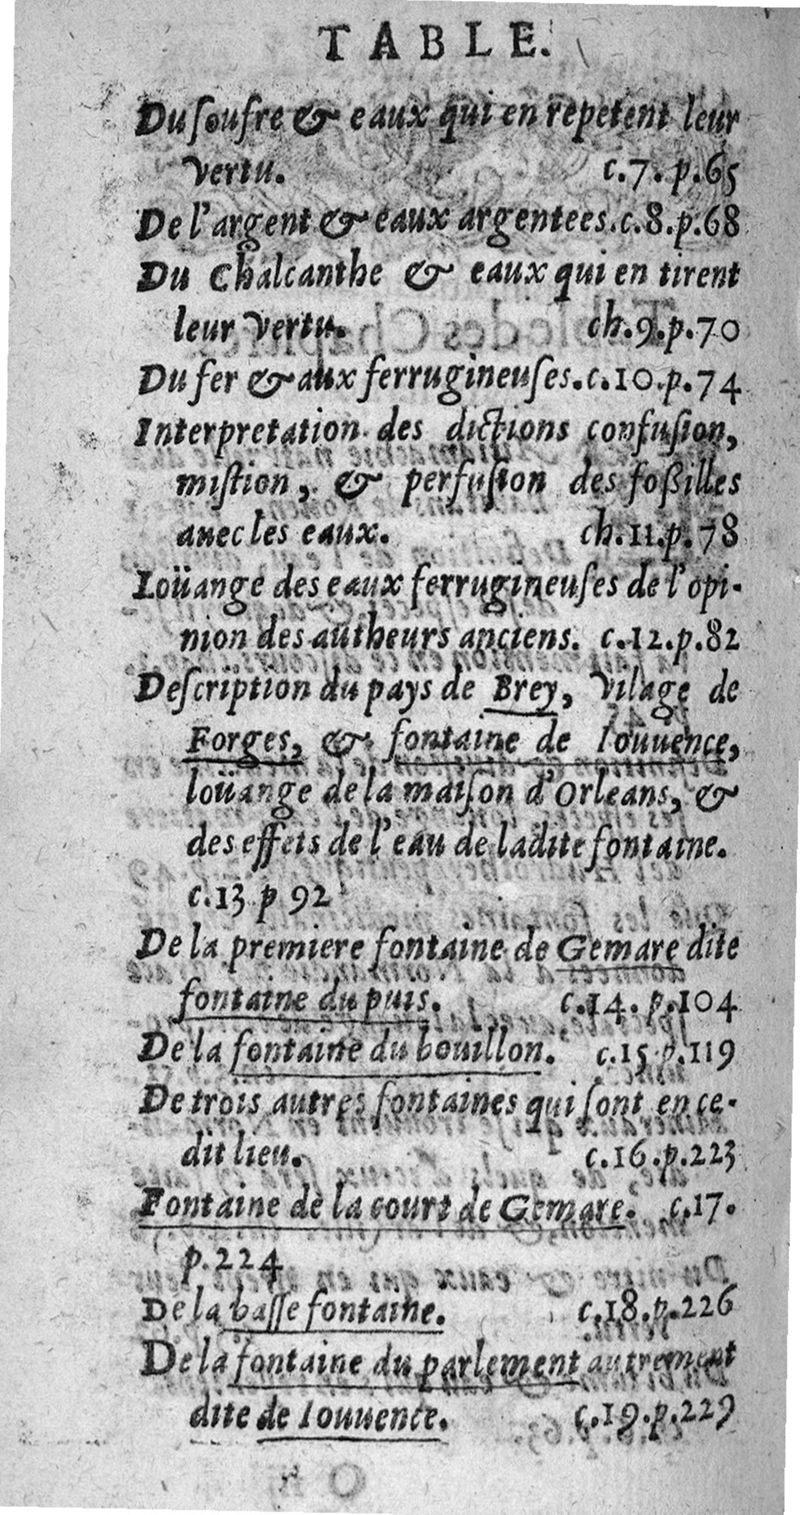 TABLE.
Du soufre & eaux qui en repetent leur
vertu. c.7.p.65
De l'argent & eaux argentees.c.8.p.68
Du Chalcanthe & eaux qui en tirent
leur vertu. ch.9.p.70
Du fer & aux ferrugineuſes.c.10.p.74
Interpretation des dictions confuſion,
miſtion, & perfuſion des foßilles
auec les eaux. ch.11.p.78
Loüange des eaux ferrugineuſes de l'opi-
nion des autheurs anciens. c.12.p.82
Deſcription du pays de Brey, Vilage de
Forges, & fontaine de Iouuence,
loüange de la maiſon d'Orleans, &
des effets de l'eau de ladite fontaine.
c.13 p 92
De la premiere fontaine de Gemare dite
fontaine du puis. c.14. p.104
De la fontaine du bouillon. c.15 p.119
De trois autres fontaines qui ſont en ce-
dit lieu. c.16.p.223
Fontaine de la court de Gemare. c.17.
p.224
De la baſſe fontaine. c.18.p.226
De la fontaine du parlement autrement
dite de Iouuence. c.19.p.229